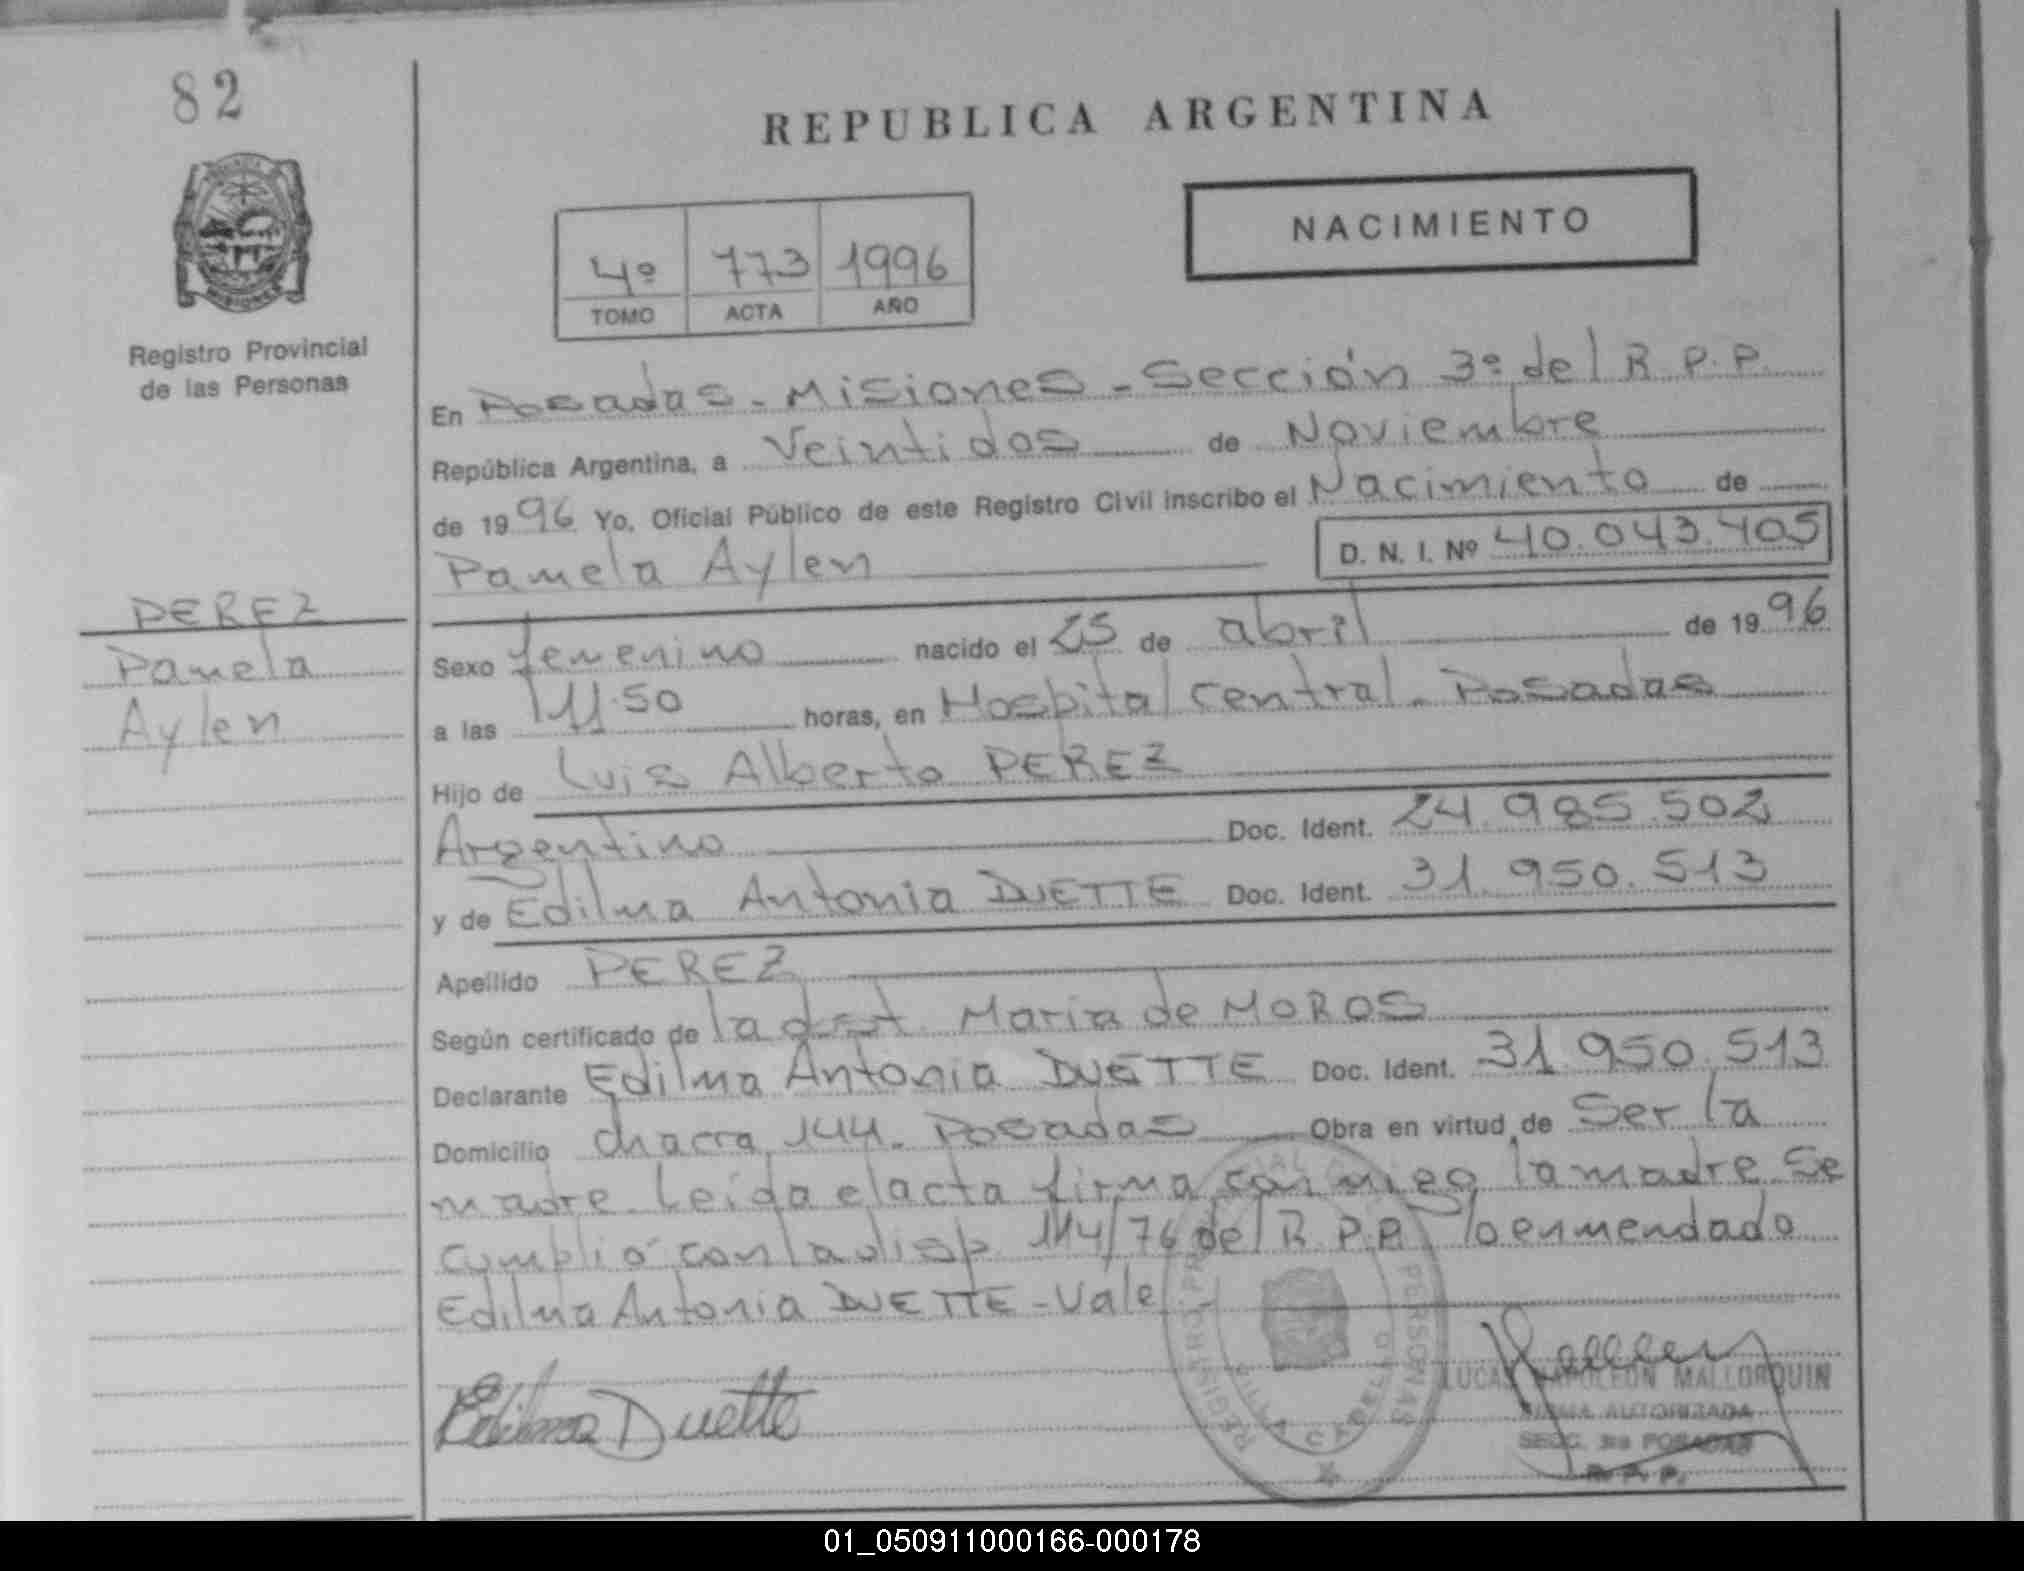 82
REPUBLICA ARGENTINA
NACIMIENTO
4º 773 1996
TOMO ACTA AÑO
MISIONES
Registro Provincial
de las Personas
En Posadas - Misiones - Sección 3º del R.P.P.
República Argentina, a Veintidos de Noviembre
de 1996 Yo, Oficial Público de este Registro Civil inscribo el Nacimiento de
Pamela Aylen
D. N. I. Nº 40.043.405
PEREZ
Pamela
Aylen
Sexo femenino nacido el 25 de abril de 1996
a las 11.50 horas, en Hospital Central - Posadas
Hijo de Luis Alberto PEREZ
Argentino Doc. Ident. 24.985.502
y de Edilma Antonia DUETTE Doc. Ident. 31.950.513
Apellido PEREZ
Según certificado de la obst. Maria de MOROS
Declarante Edilma Antonia DUETTE Doc. Ident. 31.950.513
Domicilio chacra 144. Posadas Obra en virtud de Ser la
madre. Leida el acta firma conmigo la madre. Se
cumplió con la disp. 114/76 del R.P.P. lo enmendado
Edilma Antonia DUETTE - Vale
Edilma Duette
LUCAS NAPOLEON MALLORQUIN
FIRMA AUTORIZADA
SECC. 3ra POSADAS
R. P. P.
VILLA CABELLO
01_050911000166-000178